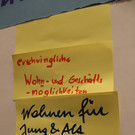 Erschwingliche
Wohn- und Geschäfts
-möglichkeiten
Wohnen für
Jung & Alt